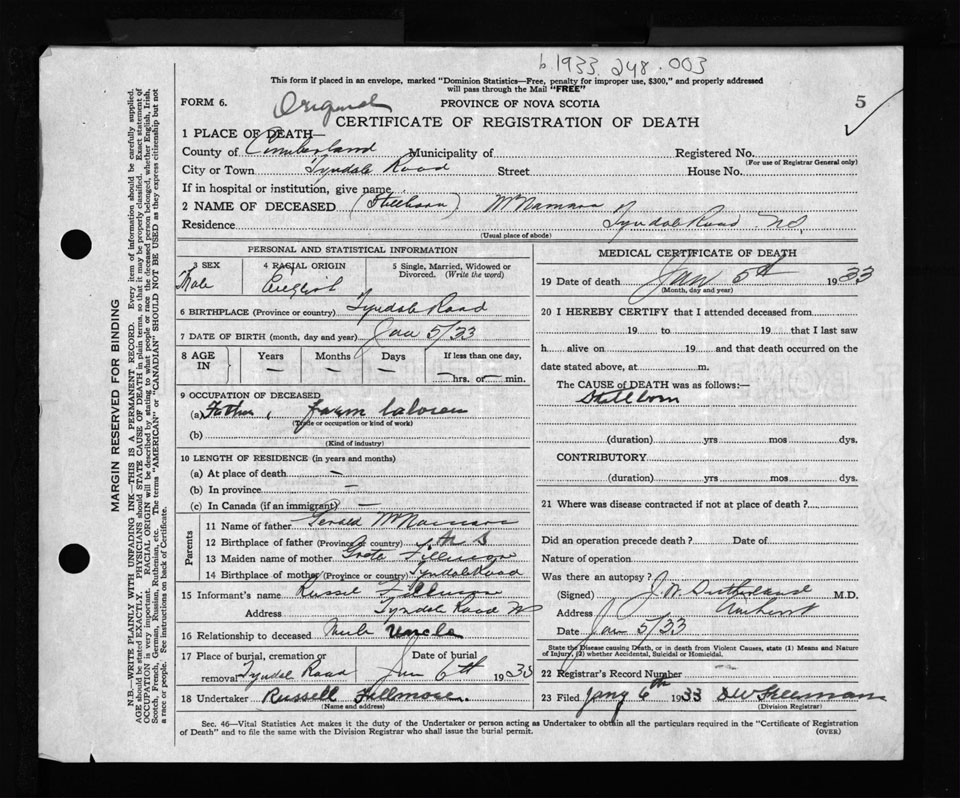 b 1933. 248.003
This form if placed in an envelope, marked "Dominion Statistics—Free, penalty for improper use, $300," and properly addressed
will pass through the Mail "FREE"
FORM 6. Original PROVINCE OF NOVA SCOTIA 5
CERTIFICATE OF REGISTRATION OF DEATH
1 PLACE OF DEATH—
County of Cumberland Municipality of Registered No.
(For use of Registrar General only)
City or Town Tyndale Road Street House No.
If in hospital or institution, give name
2 NAME OF DECEASED (Stillborn) McNamara
Residence Tyndale Road N.S.
(Usual place of abode)
PERSONAL AND STATISTICAL INFORMATION
3 SEX 4 RACIAL ORIGIN 5 Single, Married, Widowed or
Divorced. (Write the word)
Male English
6 BIRTHPLACE (Province or country) Tyndale Road
7 DATE OF BIRTH (month, day and year) Jan 5/33
8 AGE IN Years Months Days If less than one day,
— — — —hrs. or — min.
9 OCCUPATION OF DECEASED
(a) Father, farm laborer
(Trade or occupation or kind of work)
(b)
(Kind of industry)
10 LENGTH OF RESIDENCE (in years and months)
(a) At place of death —
(b) In province —
(c) In Canada (if an immigrant) —
Parents
11 Name of father Gerald McNamara
12 Birthplace of father (Province or country) N S
13 Maiden name of mother Greta Fillmore
14 Birthplace of mother (Province or country) Tyndale Road
15 Informant's name Russel Fillmore
Address Tyndale Road NS
16 Relationship to deceased Uncle Uncle
17 Place of burial, cremation or Date of burial
removal Tyndale Road Jan 6th 1933
18 Undertaker Russell Fillmore.
(Name and address)
MEDICAL CERTIFICATE OF DEATH
19 Date of death Jan 5th 1933
(Month, day and year)
20 I HEREBY CERTIFY that I attended deceased from
19 to 19 that I last saw
h alive on 19 and that death occurred on the
date stated above, at m.
The CAUSE of DEATH was as follows:—
Stillborn
(duration) yrs mos dys.
CONTRIBUTORY
(duration) yrs mos dys.
21 Where was disease contracted if not at place of death?
Did an operation precede death? Date of
Nature of operation
Was there an autopsy?
(Signed) J. W. Sutherland M.D.
Address Amherst
Date Jan 5/33
State the Disease causing Death, or in death from Violent Causes, state (1) Means and Nature
of Injury, (2) whether Accidental, Suicidal or Homicidal.
22 Registrar's Record Number —
23 Filed Jany 6th 1933 DW Freeman
(Division Registrar)
Sec. 46—Vital Statistics Act makes it the duty of the Undertaker or person acting as Undertaker to obtain all the particulars required in the "Certificate of Registration
of Death" and to file the same with the Division Registrar who shall issue the burial permit. (OVER)
MARGIN RESERVED FOR BINDING
N.B.—WRITE PLAINLY WITH UNFADING INK—THIS IS A PERMANENT RECORD. Every item of information should be carefully supplied.
AGE should be stated EXACTLY. PHYSICIANS should STATE CAUSE OF DEATH in plain terms, so that it may be properly classified. Exact statement of
OCCUPATION is very important. RACIAL ORIGIN will be described by stating to what people or race the deceased person belonged, whether English, Irish,
Scotch, French, German, Russian, Ruthenian, etc. The terms "AMERICAN" or "CANADIAN" SHOULD NOT BE USED as they express citizenship but not
a race or people. See instructions on back of Certificate.